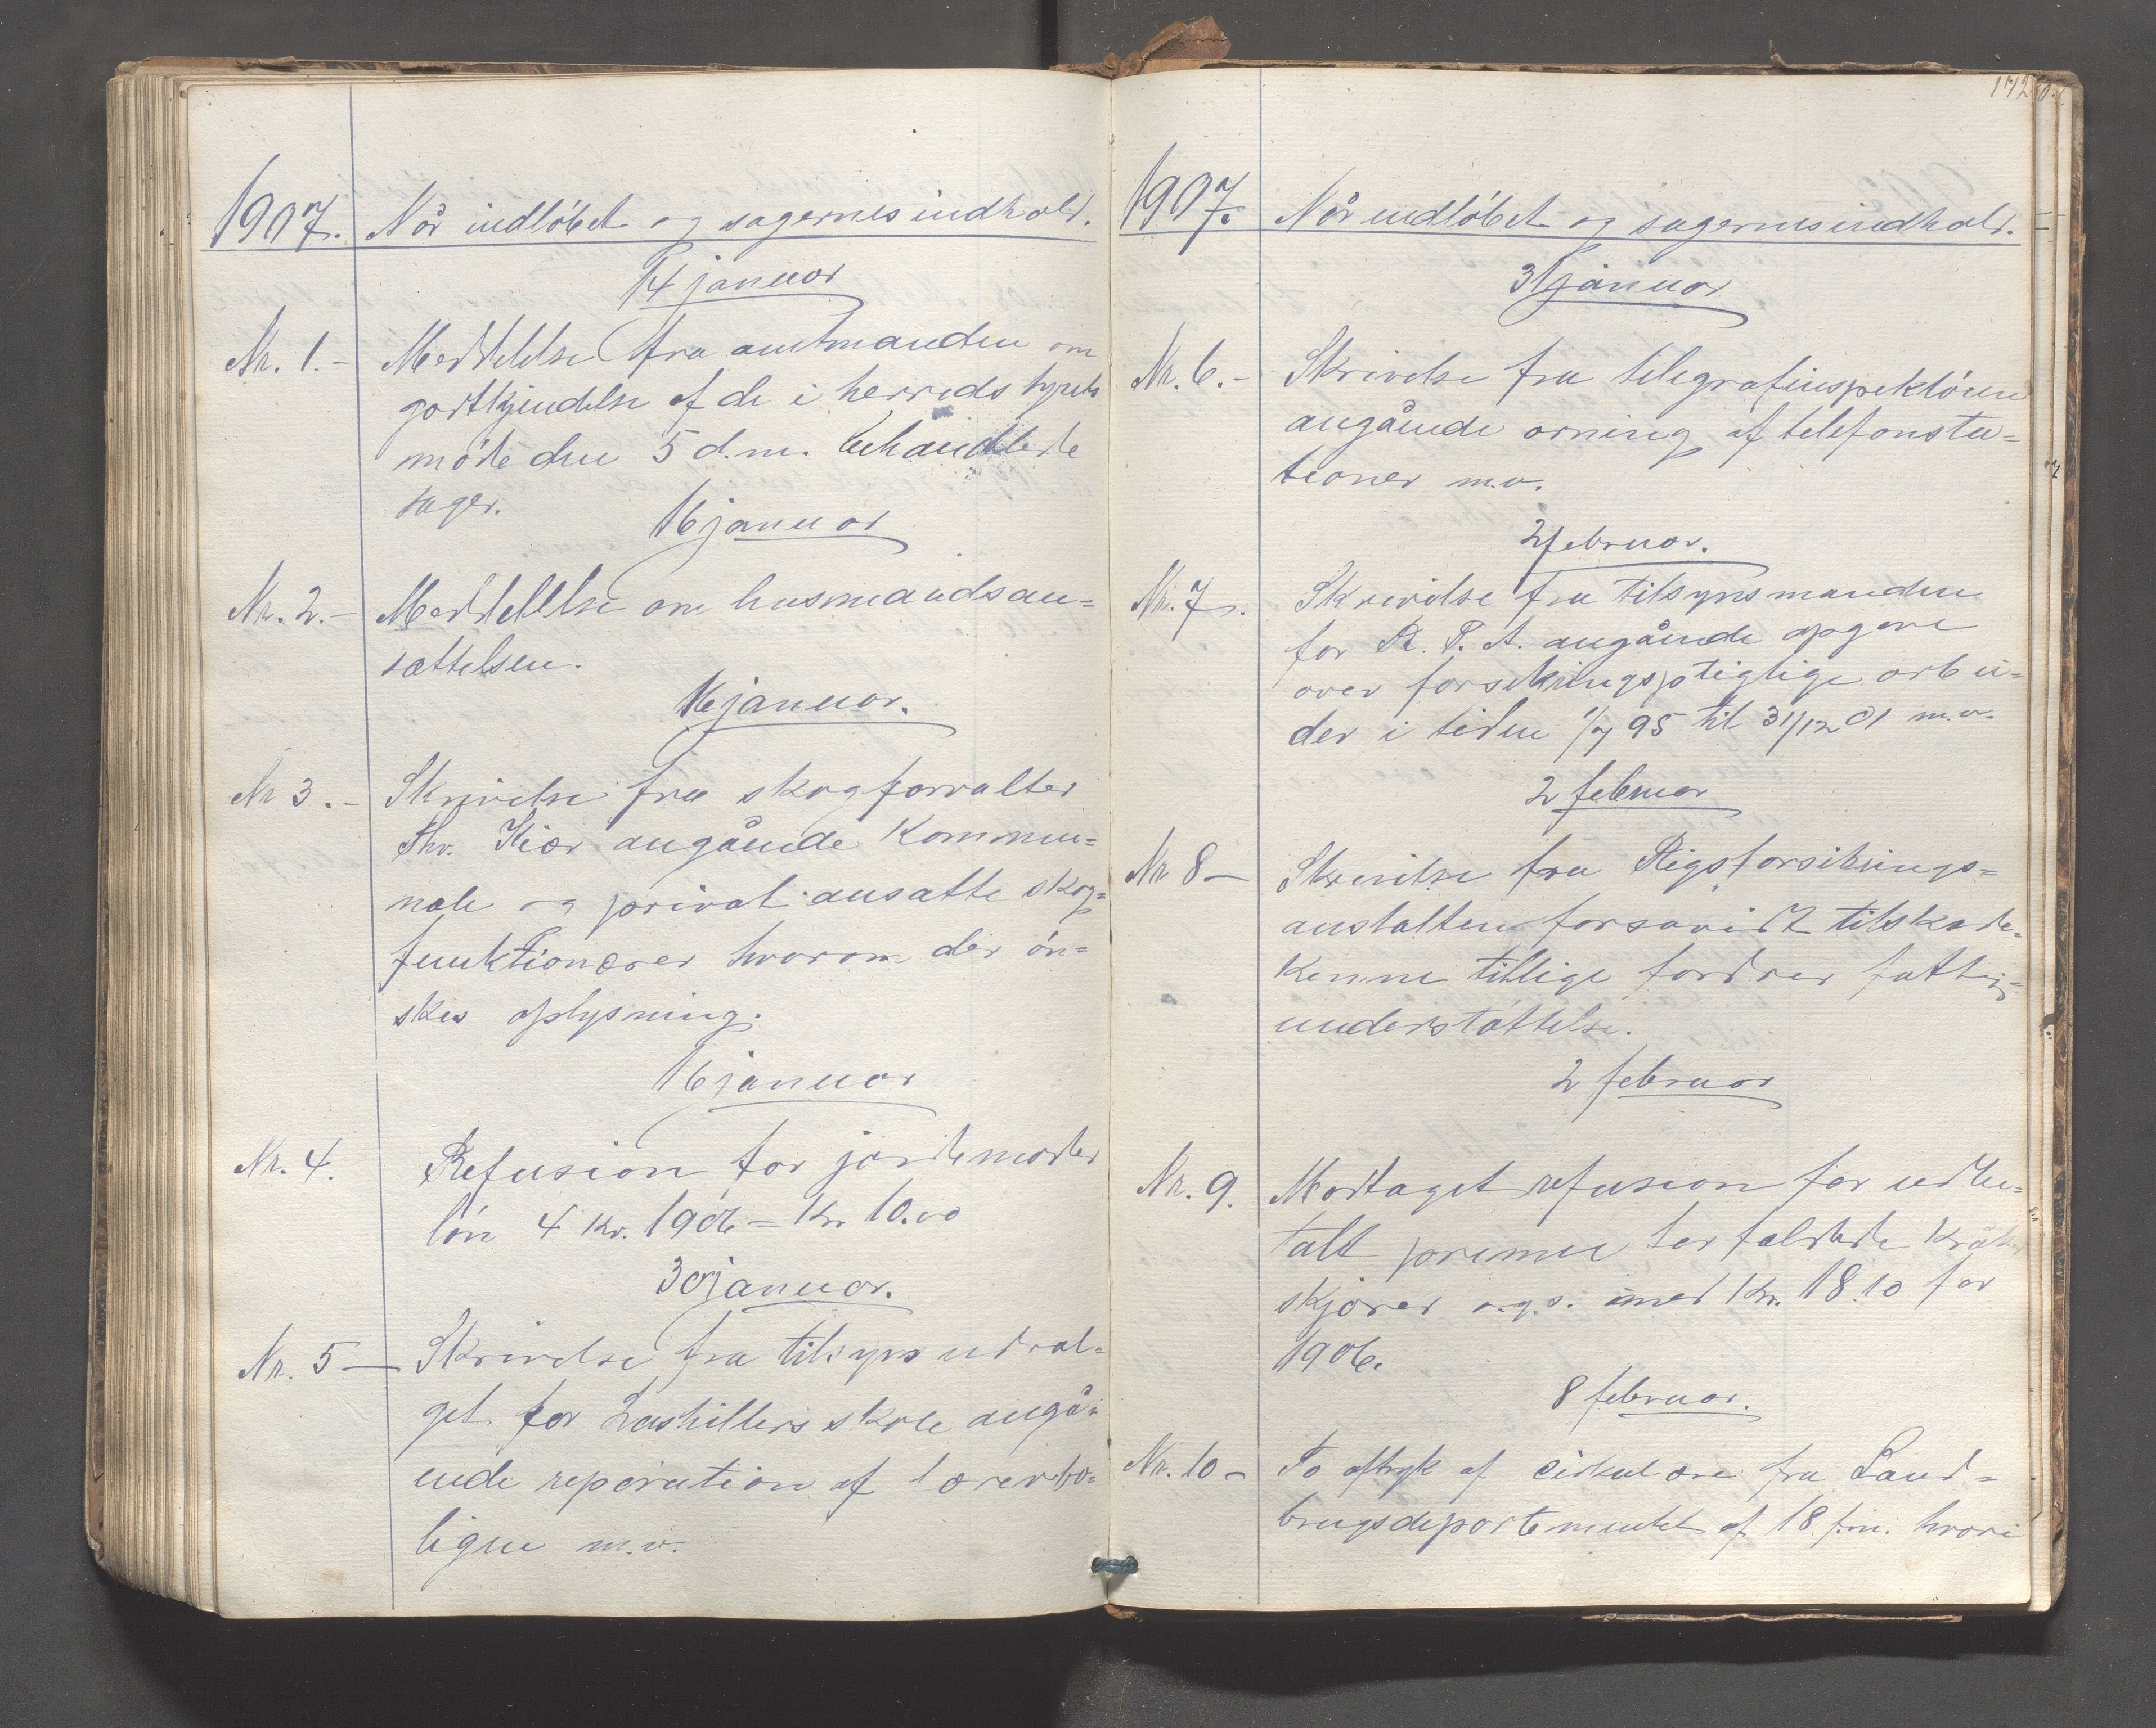 1907. Når indløbet og sagernes indhold.
14 januar
Nr. 1.- Meddelelse fra amtmanden om
godtkjendelse af de i herredsstyrets
møde den 5 d.m. behandlede
sager.
16 januar
Nr. 2.- Meddelelse om husmandsan=
sættelsen.
16 januar.
Nr 3.- Skrivelse fra skogforvalter
Thv. Kiær angående kommu=
nale og privat ansatte skog=
funktionærer hvorom der øn=
skes oplysning.
16 januar
Nr. 4. Refusion for jordemoder
løn 4 kv. 1906 = Kr. 10.00
30 januar.
Nr. 5 - Skrivelse fra tilsynsudval=
get for skole angå=
ende reparation af lærerbo=
ligen m.v.
172
1907. Når indløbet og sagernes indhold.
31 januar
Nr. 6.- Skrivelse fra telegrafinspektøren
angående orning af telefonsta=
tioner m.v.
2 februar.
Nr. 7. Skrivelse fra tilsynsmanden
for R. F. A. angående opgave
over forsikringspligtige arbei=
der i tiden 1/7 95 til 31/12 01 m.v.
2 februar
Nr 8 - Skrivelse fra Rigsforsikrings=
anstalten forsåvidt tilskade=
komne tillige fordrer fattig=
understøttelse.
2 februar
Nr. 9. Modtaget refusion for udbe=
talt præmie for fældede kråker
skjorer o.g.s. med Kr. 18.10 for
1906.
8 februar.
Nr. 10 - To aftryk af cirkulære fra Land=
brugsdepartementet af 18 f.m. hvori